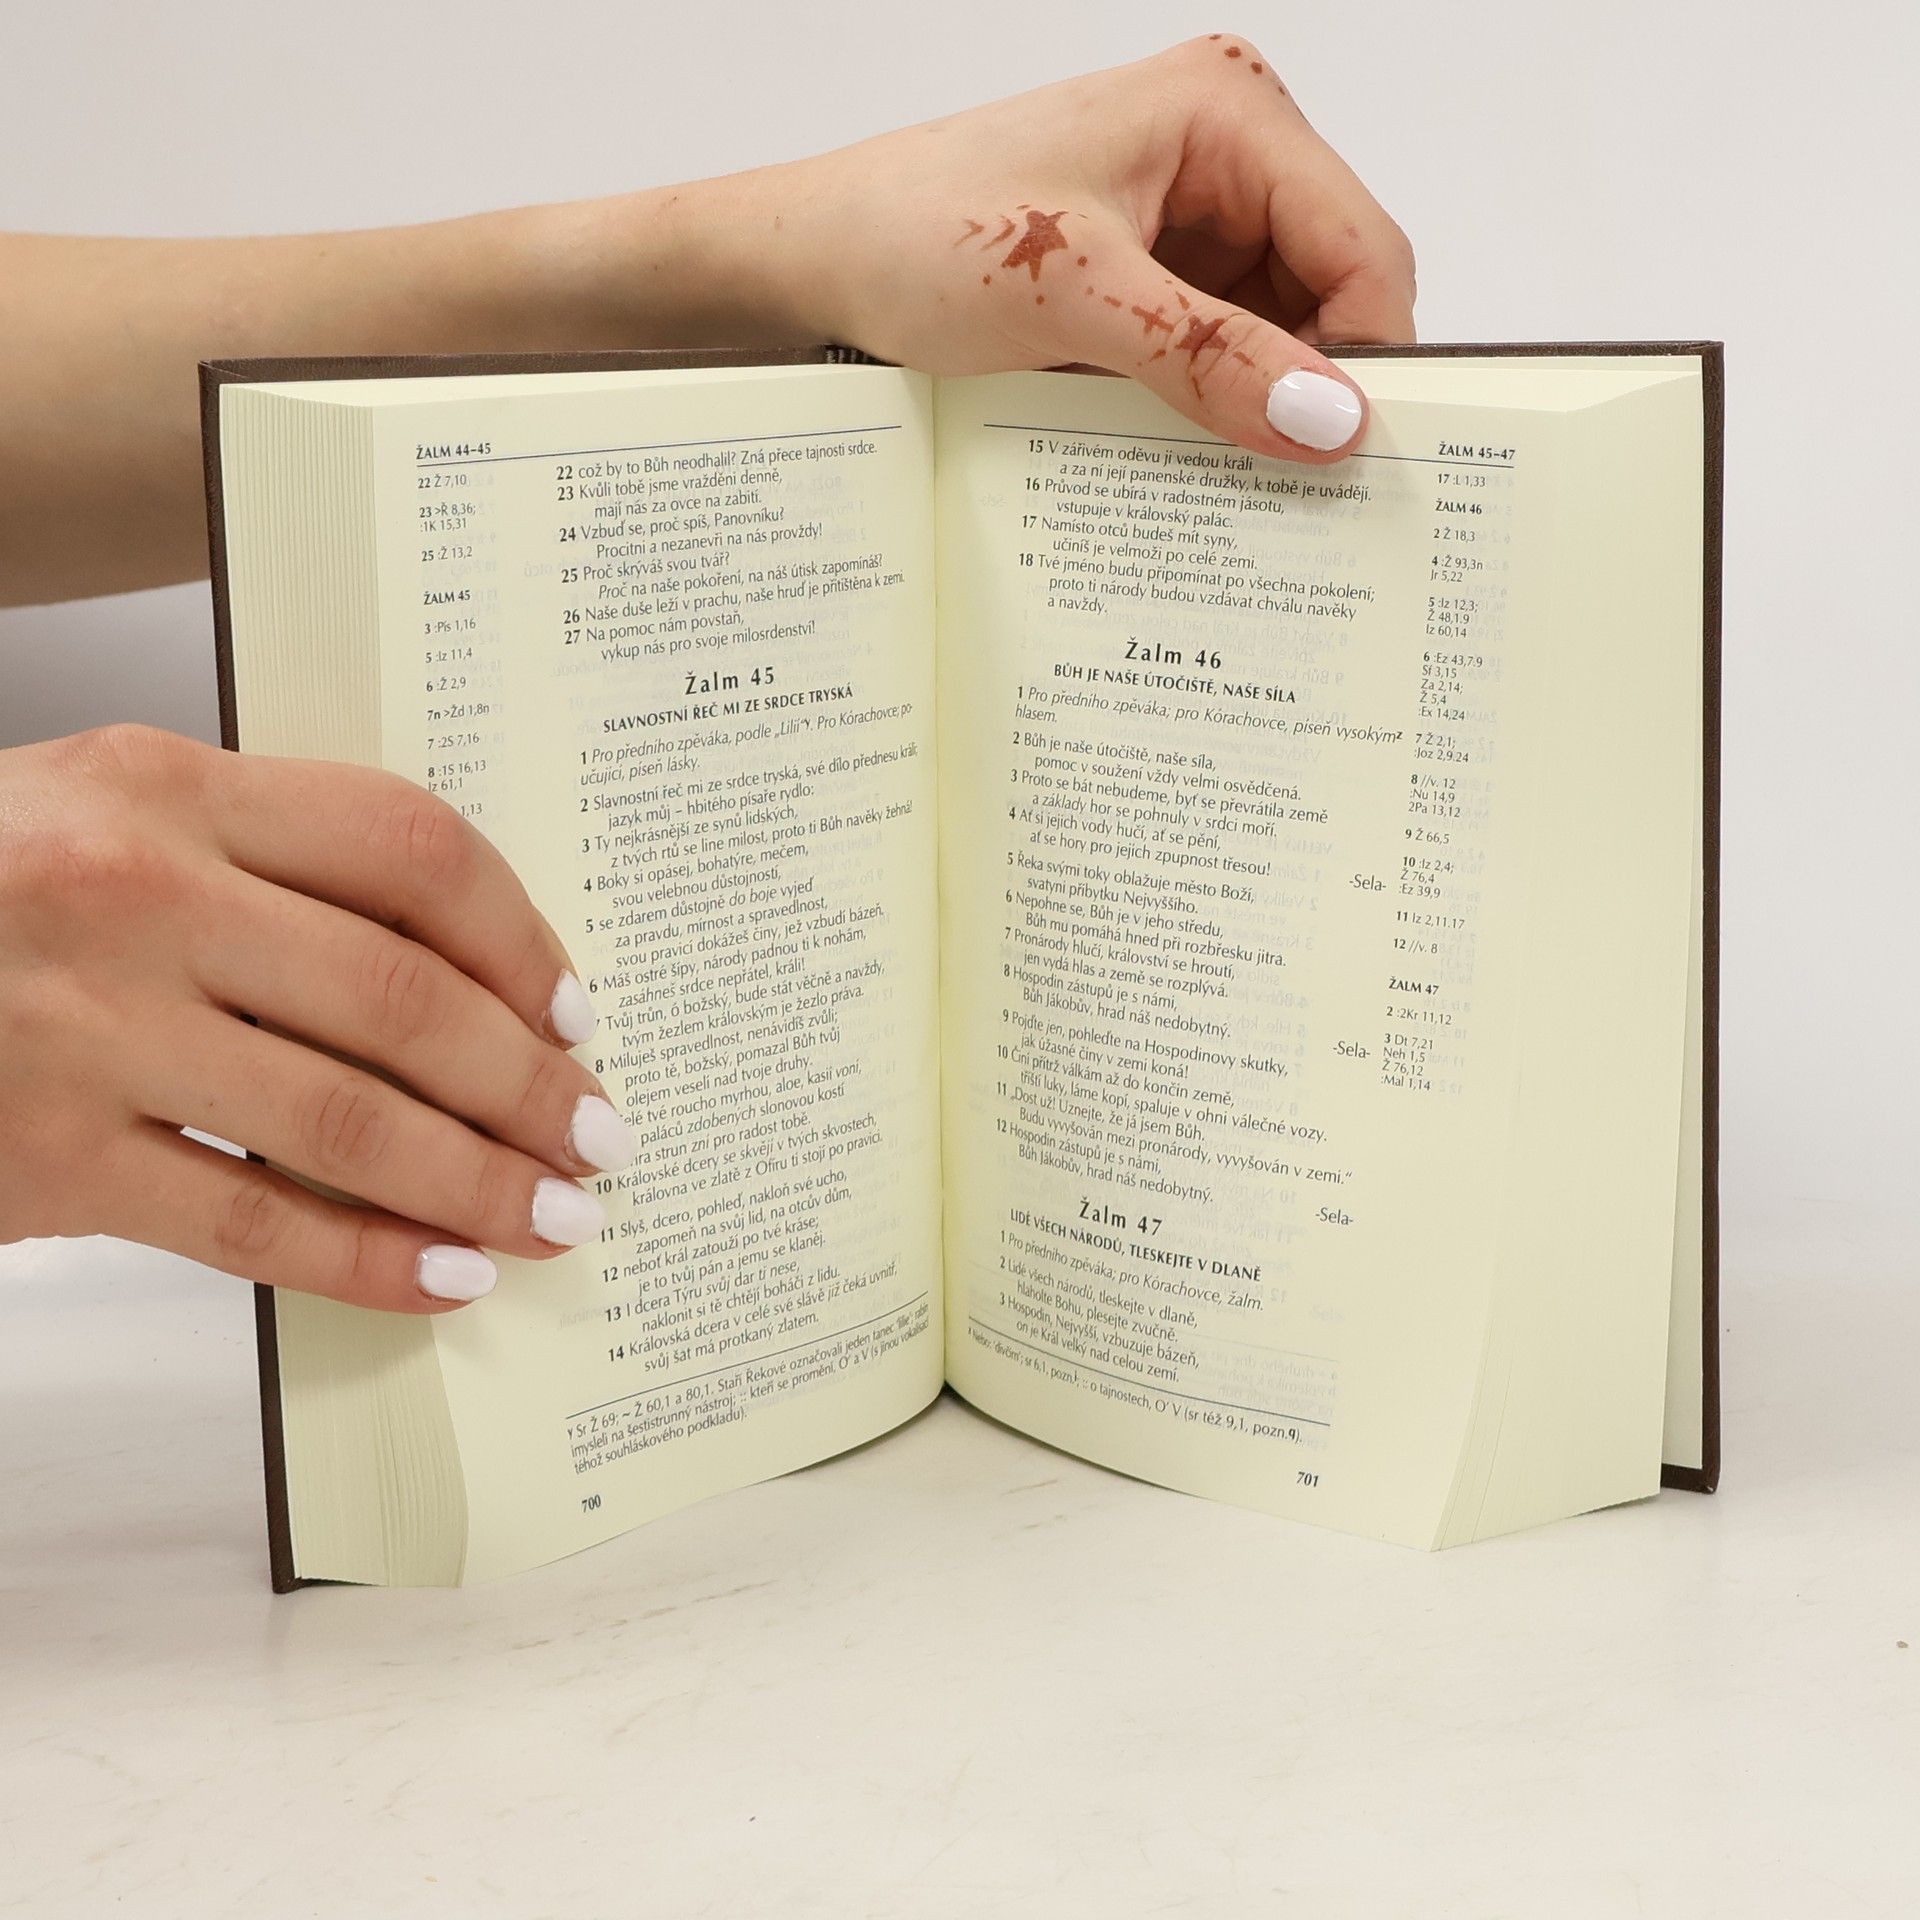 ŽALM 44–45
22 Ž 7,10
23 >Ř 8,36;
:1K 15,31
25 :Ž 13,2
ŽALM 45
3 :Pís 1,16
5 :Iz 11,4
6 :Ž 2,9
7n >Žd 1,8n
7 :2S 7,16
8 :1S 16,13
Iz 61,1
1,13
22 což by to Bůh neodhalil? Zná přece tajnosti srdce.
23 Kvůli tobě jsme vražděni denně,
mají nás za ovce na zabití.
24 Vzbuď se, proč spíš, Panovníku?
Procitni a nezanevři na nás provždy!
25 Proč skrýváš svou tvář?
Proč na naše pokoření, na náš útisk zapomínáš?
26 Naše duše leží v prachu, naše hruď je přitištěna k zemi.
27 Na pomoc nám povstaň,
vykup nás pro svoje milosrdenství!
Žalm 45
SLAVNOSTNÍ ŘEČ MI ZE SRDCE TRYSKÁ
1 Pro předního zpěváka, podle „Lilií“ʸ. Pro Kórachovce, po-
učující, píseň lásky.
2 Slavnostní řeč mi ze srdce tryská, své dílo přednesu králi;
jazyk můj – hbitého písaře rydlo:
3 Ty nejkrásnější ze synů lidských,
z tvých rtů se line milost, proto ti Bůh navěky žehná!
4 Boky si opásej, bohatýre, mečem,
svou velebnou důstojností,
5 se zdarem důstojně do boje vyjeď
za pravdu, mírnost a spravedlnost,
svou pravicí dokážeš činy, jež vzbudí bázeň.
6 Máš ostré šípy, národy padnou ti k nohám,
zasáhneš srdce nepřátel, králi!
7 Tvůj trůn, ó božský, bude stát věčně a navždy,
tvým žezlem královským je žezlo práva.
8 Miluješ spravedlnost, nenávidíš zvůli;
proto tě, božský, pomazal Bůh tvůj
olejem veselí nad tvoje druhy.
tvé roucho myrhou, aloe, kasií voní,
paláců zdobených slonovou kostí
strun zní pro radost tobě.
10 Královské dcery se skvějí v tvých skvostech,
královna ve zlatě z Ofíru ti stojí po pravici.
11 Slyš, dcero, pohleď, nakloň své ucho,
zapomeň na svůj lid, na otcův dům,
12 neboť král zatouží po tvé kráse;
je to tvůj pán a jemu se klaněj.
13 I dcera Týru svůj dar ti nese,
naklonit si tě chtějí boháči z lidu.
14 Královská dcera v celé své slávě již čeká uvnitř,
svůj šat má protkaný zlatem.
y Sr Ž 69; ~ Ž 60,1 a 80,1. Staří Řekové označovali jeden tanec ‚lilie‘; rabín
imysleli na šestistrunný nástroj; :: kteří se promění, O’ a V (s jinou vokalisací
téhož souhláskového podkladu).
700
ŽALM 45–47
15 V zářivém oděvu ji vedou králi
a za ní její panenské družky, k tobě je uvádějí.
16 Průvod se ubírá v radostném jásotu,
vstupuje v královský palác.
17 Namísto otců budeš mít syny,
učiníš je velmoži po celé zemi.
18 Tvé jméno budu připomínat po všechna pokolení;
proto ti národy budou vzdávat chválu navěky
a navždy.
Žalm 46
BŮH JE NAŠE ÚTOČIŠTĚ, NAŠE SÍLA
1 Pro předního zpěváka; pro Kórachovce, píseň vysokýmᶻ
hlasem.
2 Bůh je naše útočiště, naše síla,
pomoc v soužení vždy velmi osvědčená.
3 Proto se bát nebudeme, byť se převrátila země
a základy hor se pohnuly v srdci moří.
4 Ať si jejich vody hučí, ať se pění,
ať se hory pro jejich zpupnost třesou!
-Sela-
5 Řeka svými toky oblažuje město Boží,
svatyni příbytku Nejvyššího.
6 Nepohne se, Bůh je v jeho středu,
Bůh mu pomáhá hned při rozbřesku jitra.
7 Pronárody hlučí, království se hroutí,
jen vydá hlas a země se rozplývá.
8 Hospodin zástupů je s námi,
Bůh Jákobův, hrad náš nedobytný.
-Sela-
9 Pojďte jen, pohleďte na Hospodinovy skutky,
jak úžasné činy v zemi koná!
10 Činí přítrž válkám až do končin země,
tříští luky, láme kopí, spaluje v ohni válečné vozy.
11 „Dost už! Uznejte, že já jsem Bůh.
Budu vyvyšován mezi pronárody, vyvyšován v zemi.“
12 Hospodin zástupů je s námi,
Bůh Jákobův, hrad náš nedobytný.
-Sela-
Žalm 47
LIDÉ VŠECH NÁRODŮ, TLESKEJTE V DLANĚ
1 Pro předního zpěváka; pro Kórachovce, žalm.
2 Lidé všech národů, tleskejte v dlaně,
hlaholte Bohu, plesejte zvučně.
3 Hospodin, Nejvyšší, vzbuzuje bázeň,
on je Král velký nad celou zemí.
z Nebo: ‚dívčím‘; sr 6,1, pozn.j; :: o tajnostech, O’ V (sr též 9,1, pozn.q).
17 :L 1,33
ŽALM 46
2 Ž 18,3
4 :Ž 93,3n
Jr 5,22
5 :Iz 12,3;
Ž 48,1.9
Iz 60,14
6 :Ez 43,7.9
Sf 3,15
Za 2,14;
Ž 5,4
:Ex 14,24
7 Ž 2,1;
:Joz 2,9.24
8 //v. 12
:Nu 14,9
2Pa 13,12
9 Ž 66,5
10 :Iz 2,4;
Ž 76,4
:Ez 39,9
11 Iz 2,11.17
12 //v. 8
ŽALM 47
2 :2Kr 11,12
3 Dt 7,21
Neh 1,5
Ž 76,12
:Mal 1,14
701